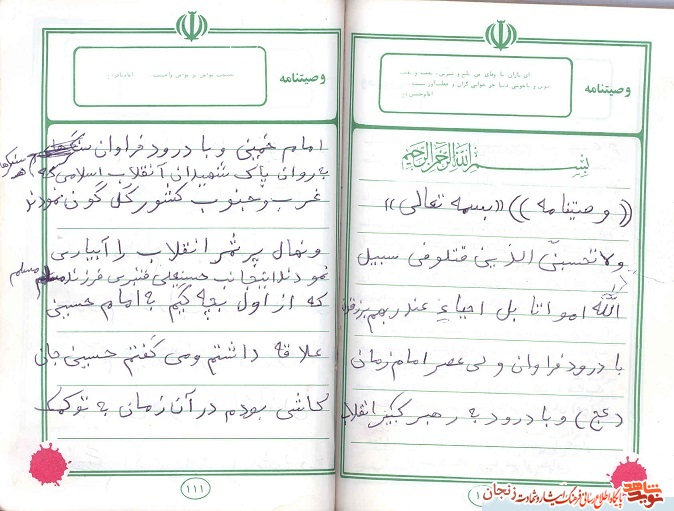 وصیتنامه
بسم الله الرحمن الرحیم
((وصیتنامه)) ((بسمه تعالی))
ولا تحسبنّ الذین قتلو فی سبیل
اللّه امواتا بل احیاءٍ عند ربهم یرزقون
با درود فراوان و لی عصر امام زمانی
(عج) و با درود به رهبر کبیر انقلاب
وصیتنامه
امام خمینی و با درود فراوان
به روان پاک شهیدان انقلاب اسلامی که
غرب و جنوب کشور گل گون نمودند
و نهال پر ثمر انقلاب را آبیاری
نمودند اینجانب حسینعلی قنبری فرزند مسلم
که از اول بچه گیم به امام حسینی
علاقه داشتم ومی گفتم حسینی جانی
کاشی بودم در آن زمانی به تو کمک
۱۱۱
نوید شاهد پایگاه اطلاع رسانی فرهنگ ایثار و شهادت زنجان